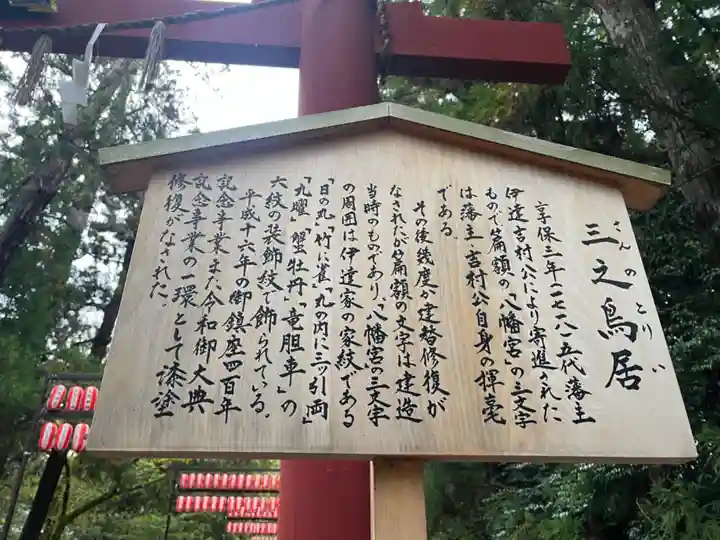 三之鳥居
さんのとりい
享保三年(一七一八)五代藩主
伊達吉村公により寄進された
もので、扁額の「八幡宮」の三文字
は藩主・吉村公自身の揮毫
である。
その後幾度か建替修復が
なされたが扁額の文字は建造
当時のものであり、「八幡宮」の三文字
の周囲は伊達家の家紋である
「日の丸」「竹に雀」「丸の内に三ッ引両」
「九曜」「蟹牡丹」「竜胆車」の
六紋の装飾紋で飾られている。
平成十六年の御鎮座四百年
記念事業また令和御大典
記念事業の一環として漆塗
修復がなされた。